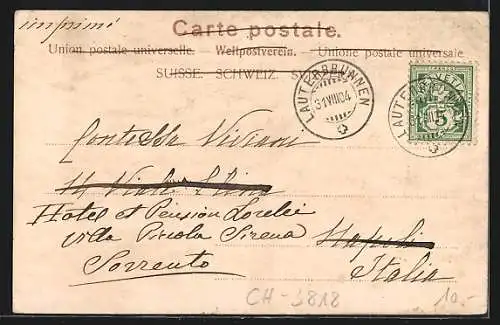 imprimé
Carte postale.
Union postale universelle. — Weltpostverein. — Unione postale universale
SUISSE. SCHWEIZ.
LAUTERBRUNNEN
31 VIII 04
LAUTERBRUNNEN
5
Contessa Viviani
14 Viale Elina
Hôtel et Pension Lorelei
villa Piccola Sirena Napoli
Sorrento Italia
CH-3818
10.-